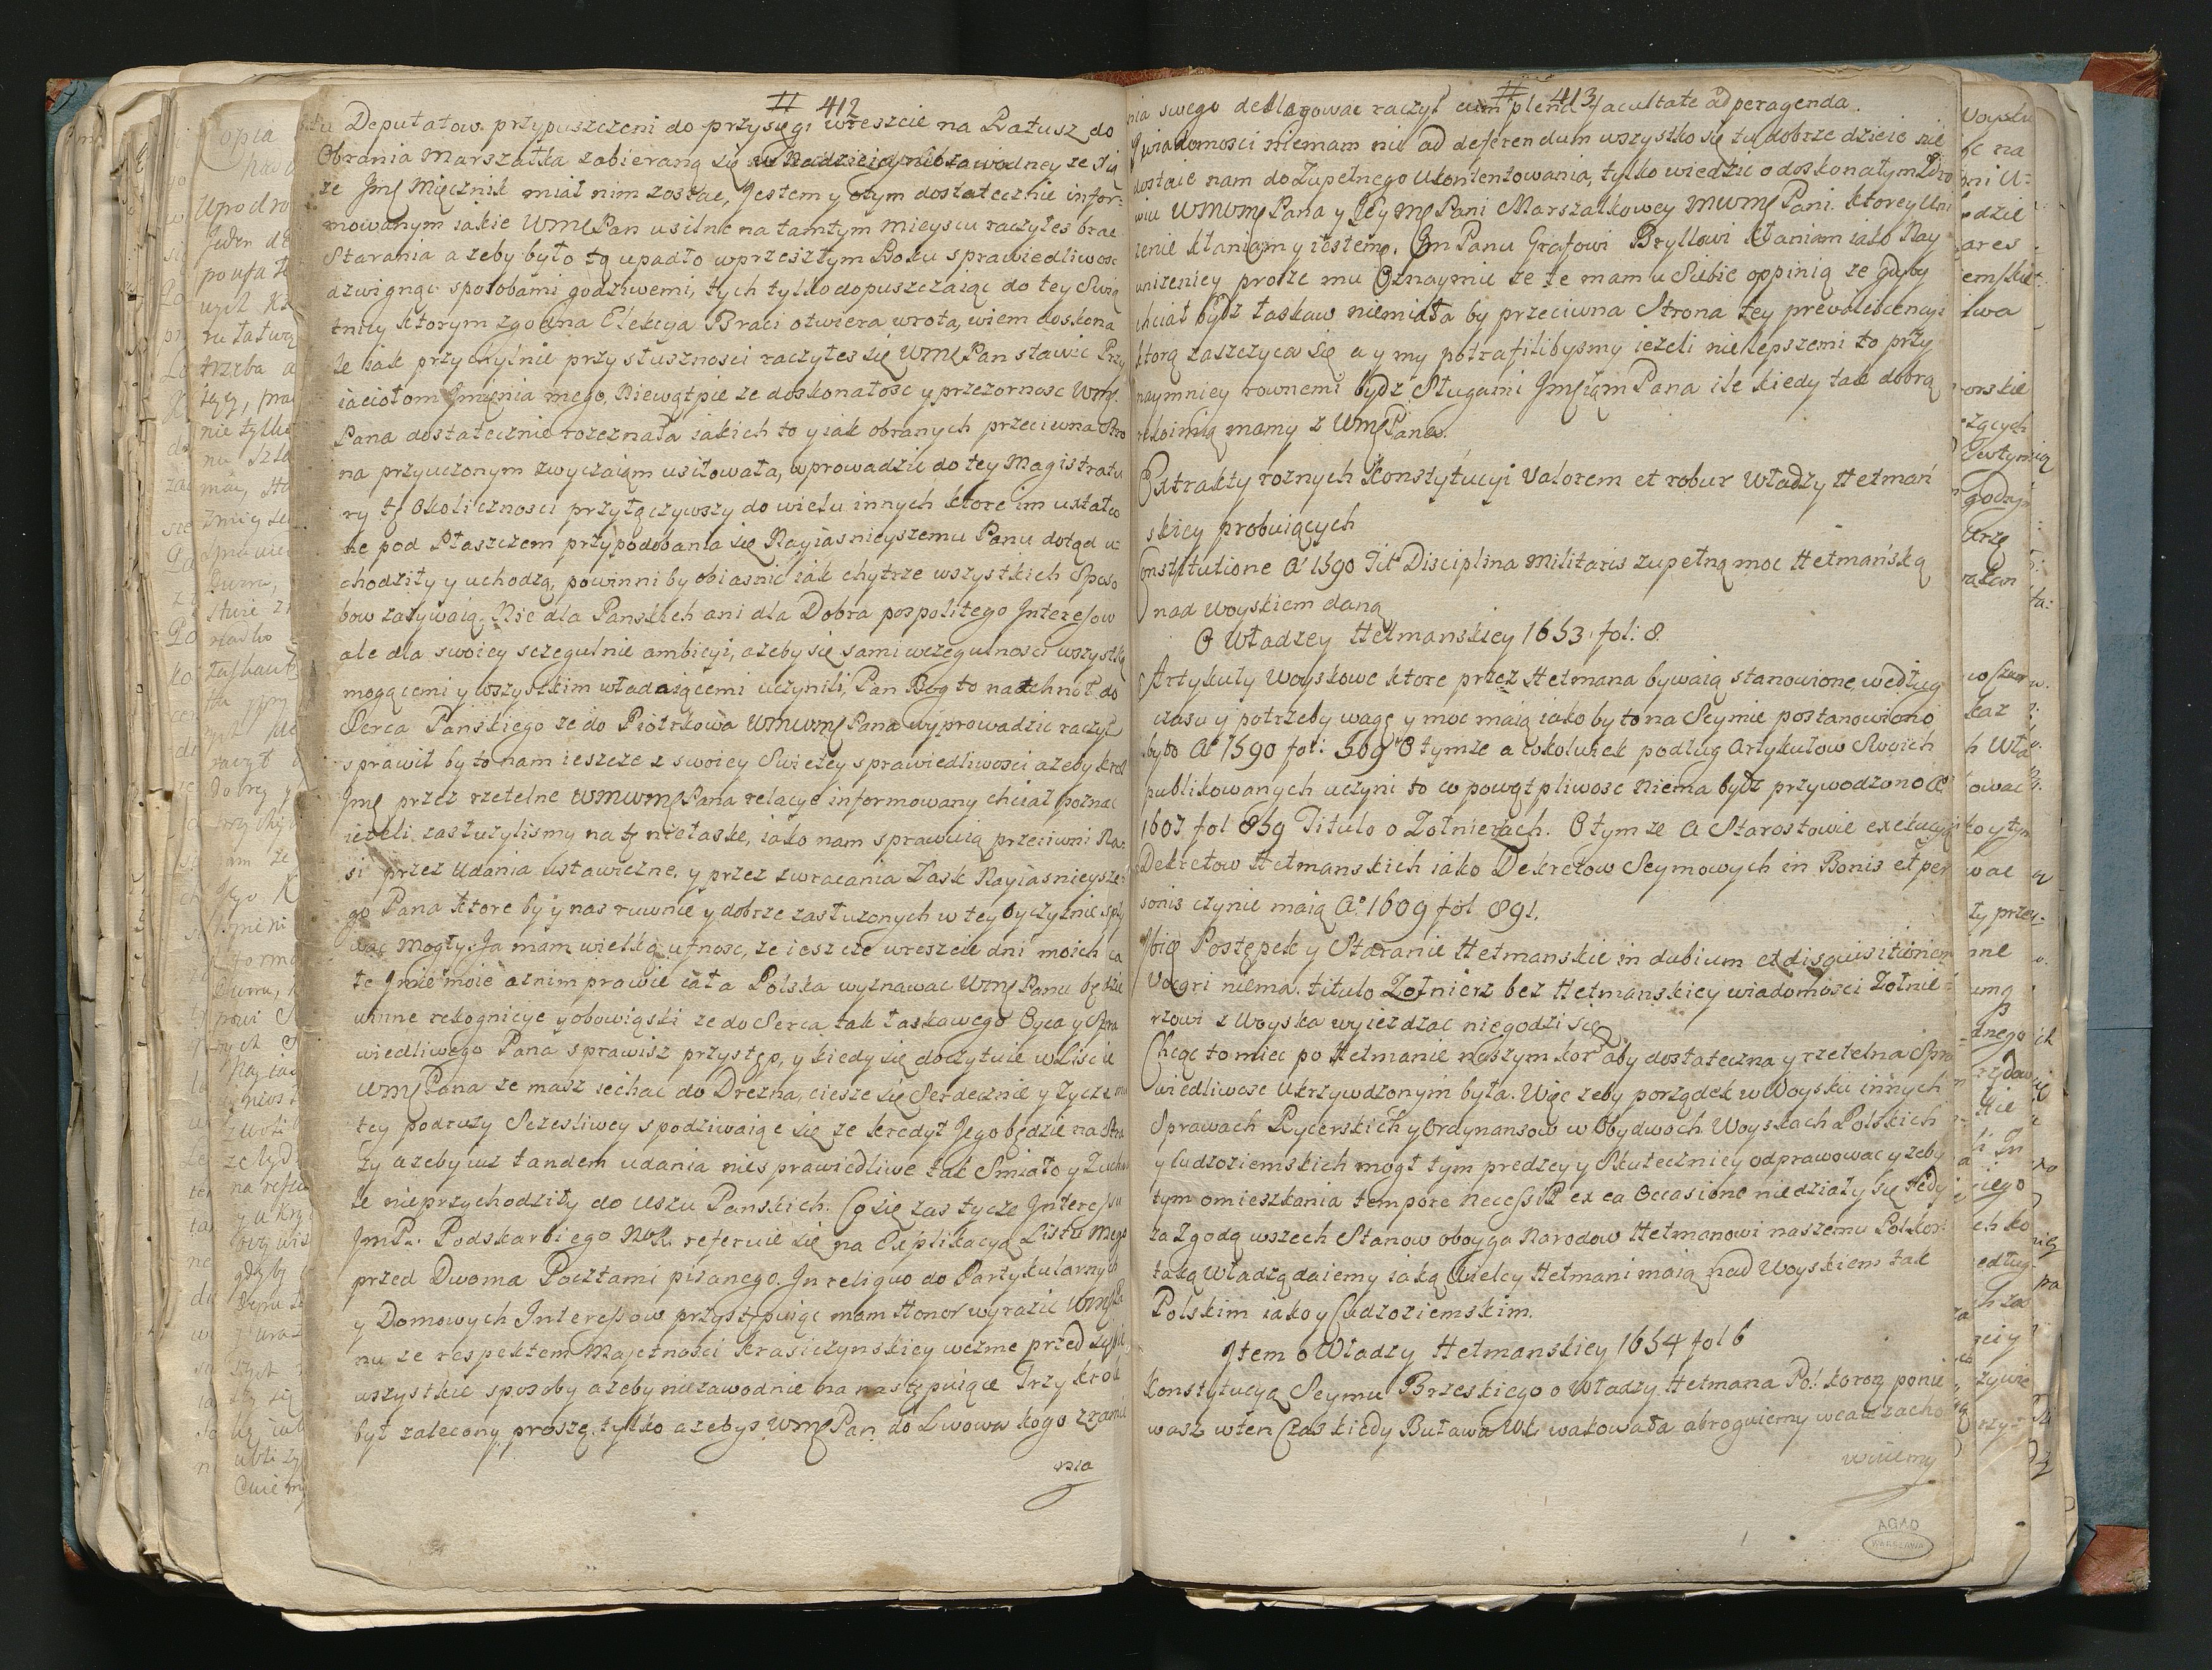 412
Deputatow przypuszczeni do przysięgi wreszcie na Ratusz do
Obrania Marszałka zabieraną się w Nadzieię niezawodney ze Się
ze Jmę Miecznik miał nim zostac, Jestem y otym dostatecznie infor:
mowanym iakie WMę Pan usilne na tamtym mieyscu raczyłes brac
Starania azeby było tą upadło wprzeszłym Roku sprawiedliwosc
dzwignąc sposobami godziwemi, tych tylko dopuszczaiąc do tey Swią
tnicy ktorym zgodna Elekcya Braci otwiera wrota, wiem doskona
le iak przychylnie przy słusznosci raczyłes się WMę Pan stawic Przy
iaciołom Imienia mego, Niewątpię ze doskonałosc y przezornosc WMę
Pana dostatecznie rozeznała iakich to y iak obranych przeciwna Stro
na przyuczonym zwyczaiąm usiłowała, wprowadzic do tey Magistratu
ry tę Okolicznosci przyłączywszy do wielu innych ktore im ukłatco
ne pod Płaszczem przypodobania się Nayiasnieyszemu Panu dotąd u:
chodziły y uchodzą, powinni by obiasnic iak chytrze wszystkich Sposo
bow zazywaią. Nie dla Panskich ani dla Dobra pospolitego Interessow
ale dla swoiey sczegulnie ambicyi, azeby się sami wczegulnosci wszystką
mogącemi y wszystkim władaiącemi uczynili, Pan Bog to natchnoł do
Serca Pańskiego ze do Piotrkowa WMWMę Pana wyprowadzic raczył
sprawił by to nam ieszcze z swoiey Swietey sprawiedliwosci azeby krol
Jmę przez rzetelne WMWMę Pana relacye informowany chciał poznac
iezeli zasłuzylismy na tę niełaskę, iako nam sprawuią przeciwni Na:
si przez Udania ustawiczne, y przez zwracania Łask Nayiasnieysze:
go Pana ktore by y nas ruwnie y dobrze zasłuzonych w tey oyczyznie spły
wac mogły. Ja mam wielką ufnosc, ze ieszcze wreszcie dni moich ca
łe Imie moie a znim prawie cała Polska wyznawac WMę Panu będzie
winne rekognicye y obowiąski ze do Serca tak łaskawego Oyca y Spra
wiedliwego Pana sprawisz przystęp, y kiedy się doczytuie w Liscie
WMę Pana ze masz iechac do Drezna, ciesze się Serdecznie y zycze mu
tey podrozy Sczesliwey spodziwaiąc się ze kredyt Jego będzie na Stra
zy azeby iuz tandem udania niesprawiedliwe tak Smiało y Zuchwa
le nieprzychodziły do Uszu Panskich. Co się zas tycze Interessu
JmP. Podskarbiego NoK. referuie się na Explikacyą Listu mego
przed Dwoma Pocztami pisanego. In reliquo do Partykularnych
y Domowych Interessow przystępuiąc mam Honor wyrazic WMę Pa
nu ze respektem Maiętnosci Krasiczynskiey wezme przed się
wszystkie sposoby azeby niezawodnie na następuiące Trzy krol
był zalecony, proszę tylko azebys WMę Pan do Lwowa kogo zramie
nia
413
nia swego delegowac raczył cum plena facultate ad peragenda.
Wiadomosci niemam nic ad deferendum wszystko się tu dobrze dzieie nie
dostaie nam do Zupełnego Ukontentowania, tylko wiedzic o doskonałym Zdro
wiu WMWMę Pana y Jey Mę Pani Marszałkowey MWMę Pani ktorey Uni
zenie kłaniąm y iestemę. Jm Panu Grafowi Bryllowi kłaniam iako Nay
unizeniey proszę mu Oznaymic ze te mam u Siebie oppinią ze gdyby
chciał bydz łaskaw niemiała by przeciwna Strona tey prewalescencyi
ktorą zaszczyca się a y my potrafilibysmy iezeli nie lepszemi to przy
naymniey rownemi bydz Sługami Jmęciąm Pana ile kiedy tak dobrą
rekoimią mamy z WMę Pana.
Extrakty roznych Konstytucyi Valorem et robur Władzy Hetmań
skiey probuiących
Constitutione A° 1590 Tit° Disciplina Militaris zupełną moc Hetmańską
nad Woyskiem daną
O Władzey Hetmanskiey 1653 fol: 8
Artykuły Woyskowe ktore przez Hetmana bywaią stanowione, według
czasu y potrzeby wagę y moc maią iako by to na Seymie postanowiono
było A° 1590 fol: 509 O tymze a cokolwiek podług Artykułow Swoich
publikowanych uczyni to w powątpliwosc Niema bydz przywodzono A°
1607 fol 859 Titulo o Zołnierzach. O tym ze A Starostowie exekucyą
Dekretow Hetmanskich iako Dekretow Seymowych in Bonis et per
sonis czynic maią A° 1609 fol 891.
Ibiq Postępek y Staranie Hetmanskie in dubium et disquisitionem
Vocari niema. titulo Zołnierz bez Hetmanskiey wiadomosci Zołnie:
rzowi z Woyska wyiezdzac niegodzi się
Chcąc to miec po Hetmanie naszym kor° aby dostateczna y rzetelna Spra
wiedliwosc Ukrzywdzonym była. Więc zeby porządek w Woysku innych
Sprawach Rycerskich y Ordynansow w Obydwoch Woyskach Polskich
y Cudzoziemskich mogł tym prędzey y Skuteczniey odprawowac y zeby
tym omieszkania tempore necessit: ex ea Occasione niedziały się tedy
za Zgodą wszech Stanow oboyga Narodow Hetmanowi naszemu Pol: kor:
taką Władzą daiemy iaką Wielcy Hetmani maią nad Woyskiem tak
Polskim iako y Cudzoziemskim.
Item o Władzy Hetmanskiey 1654 fol 6
Konstytucyą Seymu Brzeskiego o Władzy Hetmana Pol: koron: ponie
wasz wten Czas kiedy Buława WK wakowała abroguiemy wcale zacho
wuiemy
AGAD
WARSZAWA